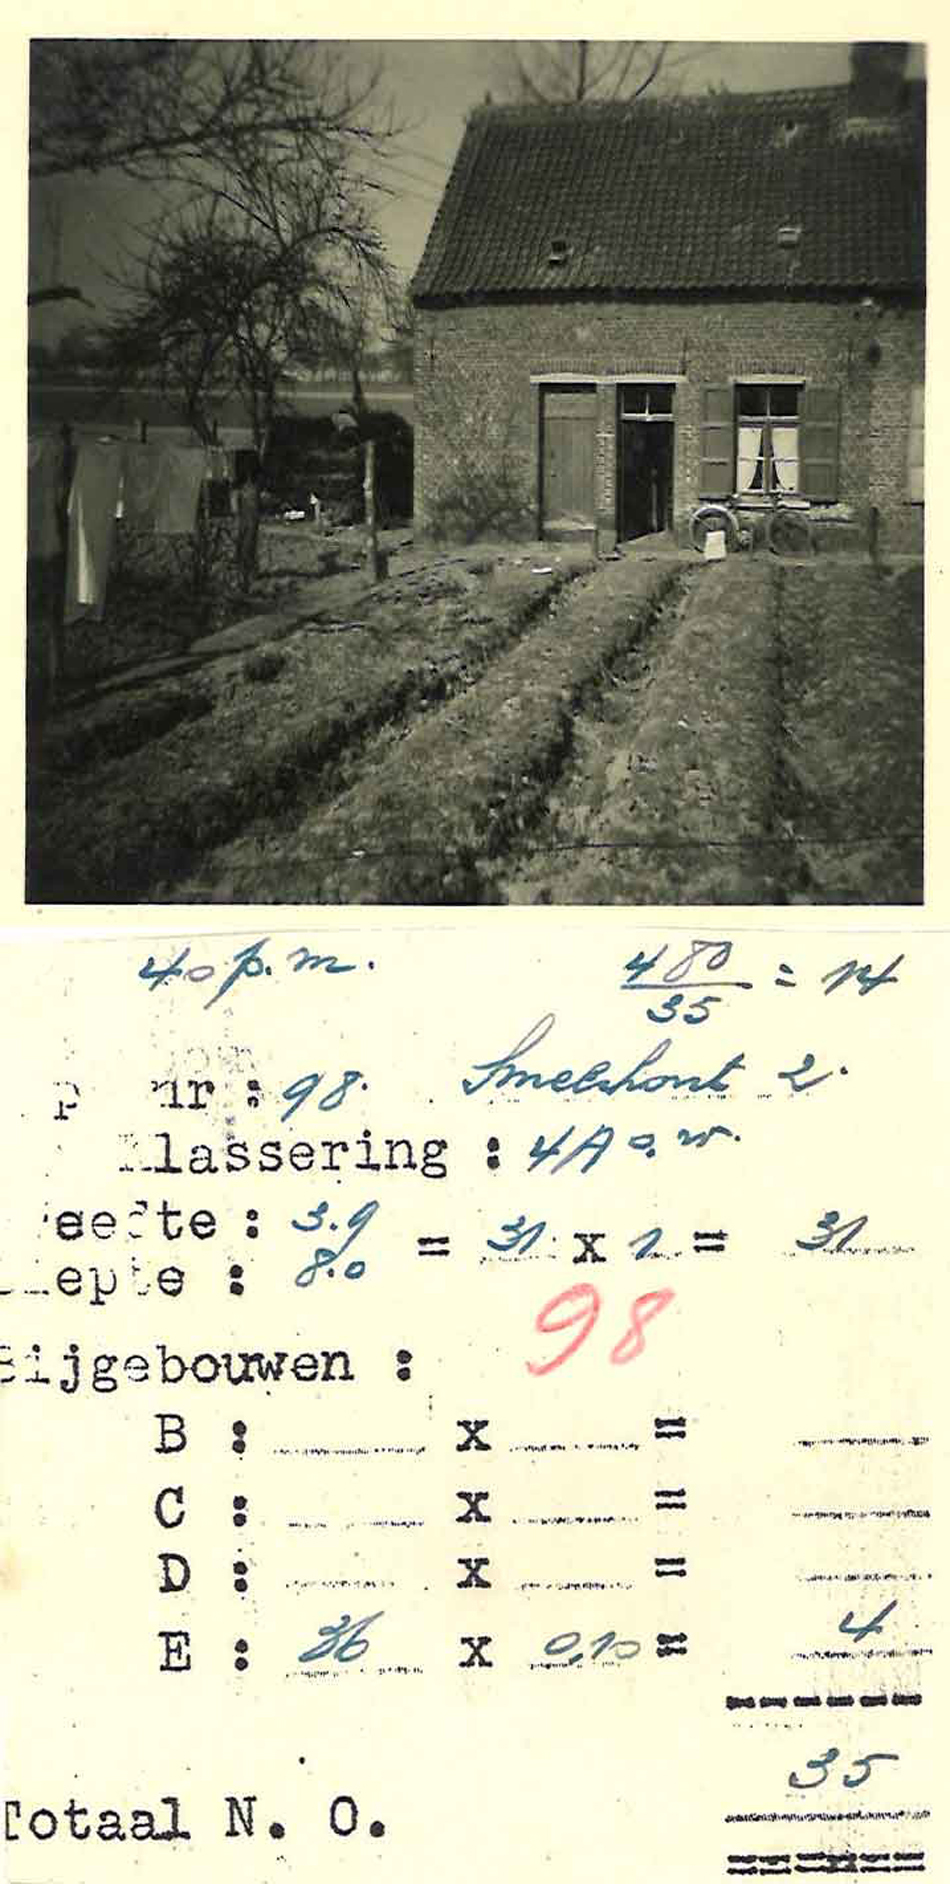 40 p.m. 480/35 = 14
nr : 98. Smelshout 2.
Klassering : 4A o.w.
eefte : 3.9
= 31 x 1 = 31
iepte : 8.0
98
Bijgebouwen :
B : x =
C : x =
D : x =
E : 36 x 0,10 = 4
35
Totaal N. O.